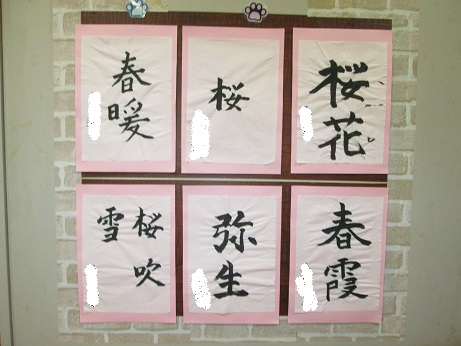 桜花
桜
春暖
春霞
弥生
桜吹
雪